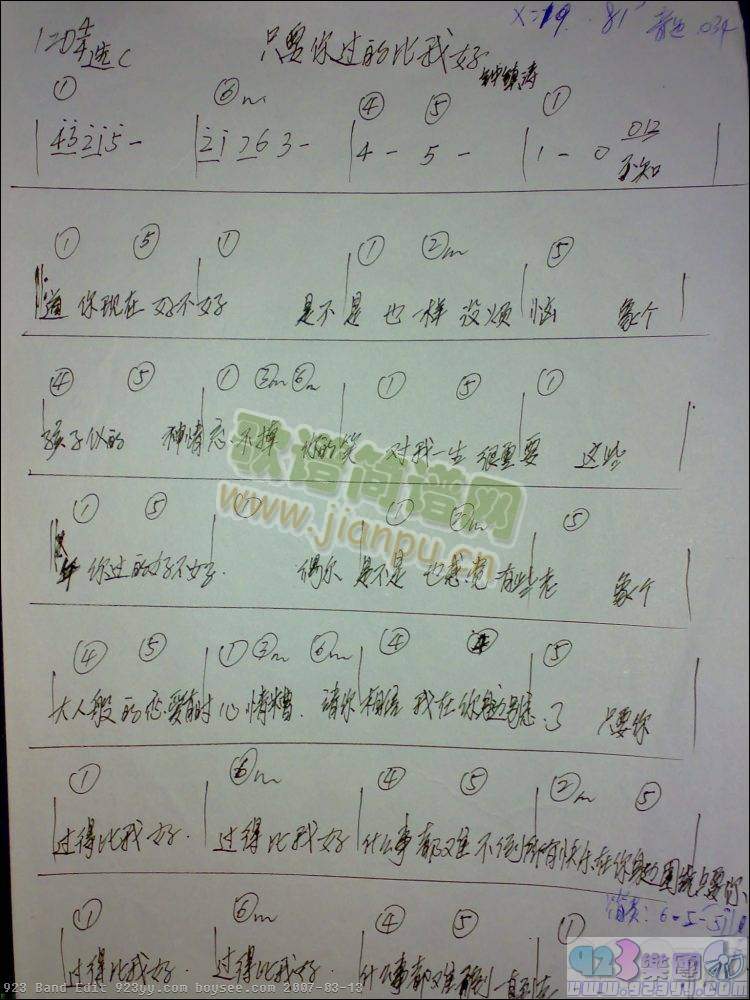 只要你过的比我好
钟镇涛
① ⑥m ④ ⑤ ①
4 - 5 - 1 - 0 012
不知
① ⑤ ① ① ②m ⑤
道 你现在 好不好 是不是 也一样 没烦恼 象个
④ ⑤ ① ③m ⑥m ① ⑤ ①
孩子似的 神情忘不掉 你的笑 对我一生 很重要 这些
① ⑤ ① ① ②m ⑤
年 你过的好不好 偶尔 是不是 也感觉 有些老 象个
④ ⑤ ① ③m ⑥m ④ ⑤
大人般的恋爱 有时心情糟 请你相信 我在你 只要你
① ⑥m ④ ⑤ ②m ⑤
过得比我好 过得比我好 什么事都难不倒 所有快乐在你身边围绕 只要你
① ⑥m ④ ⑤ ①
过得比我好 过得比我好 什么事都难不倒 一直到老
歌谱简谱网
www.jianpu.cn
923 Band Edit 923yy.com boysee.com 2007-03-13
923樂團
www.923yy.com